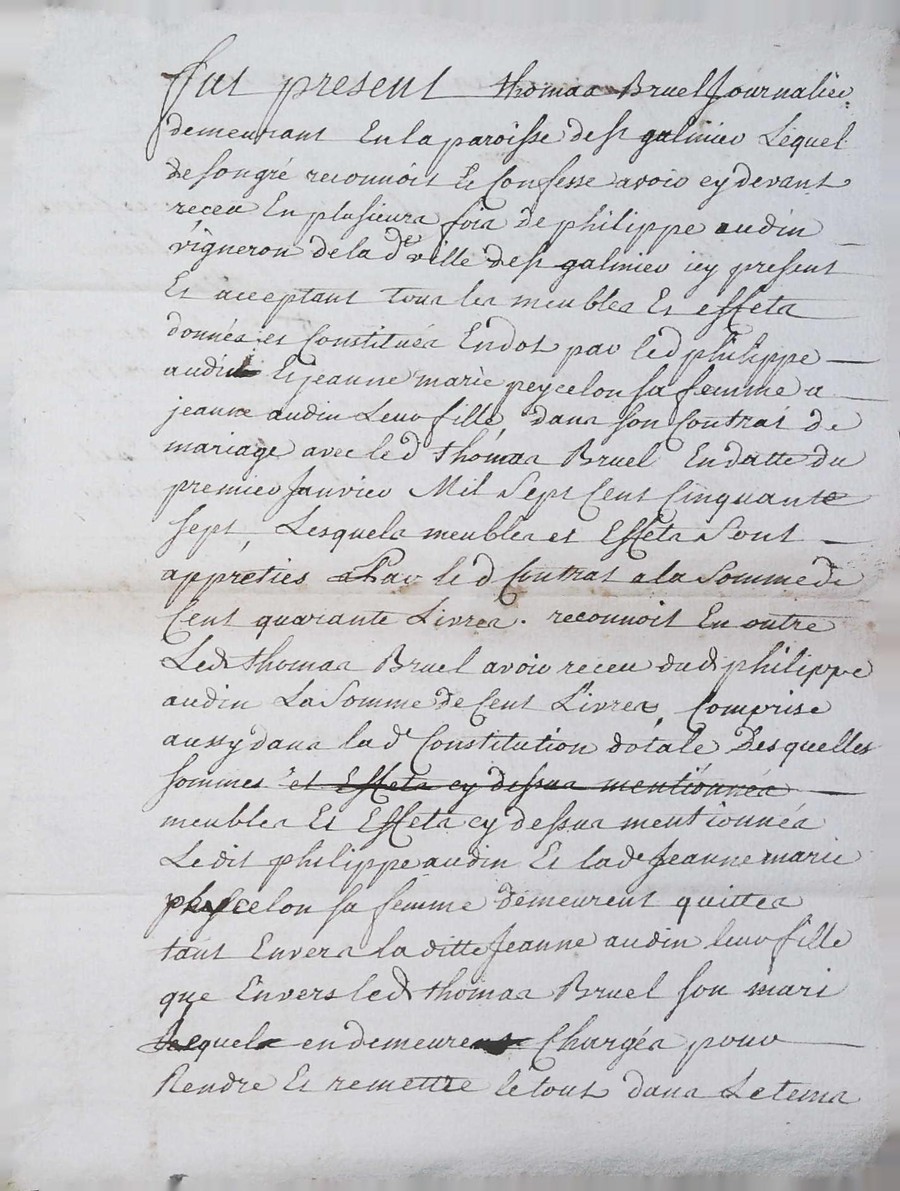 fut present thomas Bruel Journalier
demeurant En la paroisse de st galmier Lequel
de son gré reconnoit Et Confesse avoir cy devant
receu En plusieurs fois de philippe audin
vigneron de la de ville de st galmier icy present
Et acceptant tous les meubles Et effets
donnés et Constitués En dot par led philippe
audin Et jeanne marie peycelon sa femme a
jeanne audin Leur fille, dans son Contrat de
mariage avec led thomas Bruel En datte du
premier Janvier Mil Sept Cent Cinquante
sept, Lesquels meubles et Effets Sont
appreties Par led Contrat a la Somme de
Cent quarante Livres. reconnoit En outre
Led thomas Bruel avoir receu dud philippe
audin La Somme de Cent Livres, Comprise
aussy dans lad Constitution dotale Desquelles
sommes et Effets cy dessus mentionnés
meubles Et Effets cy dessus mentionnés
Ledit philippe audin Et lade Jeanne marie
peycelon sa femme demeurent quittes
tant Envers la ditte Jeanne audin leur fille
que Envers led thomas Bruel son mari
Lequels en demeure Chargés pour
Rendre Et remettre le tout dans Le tems